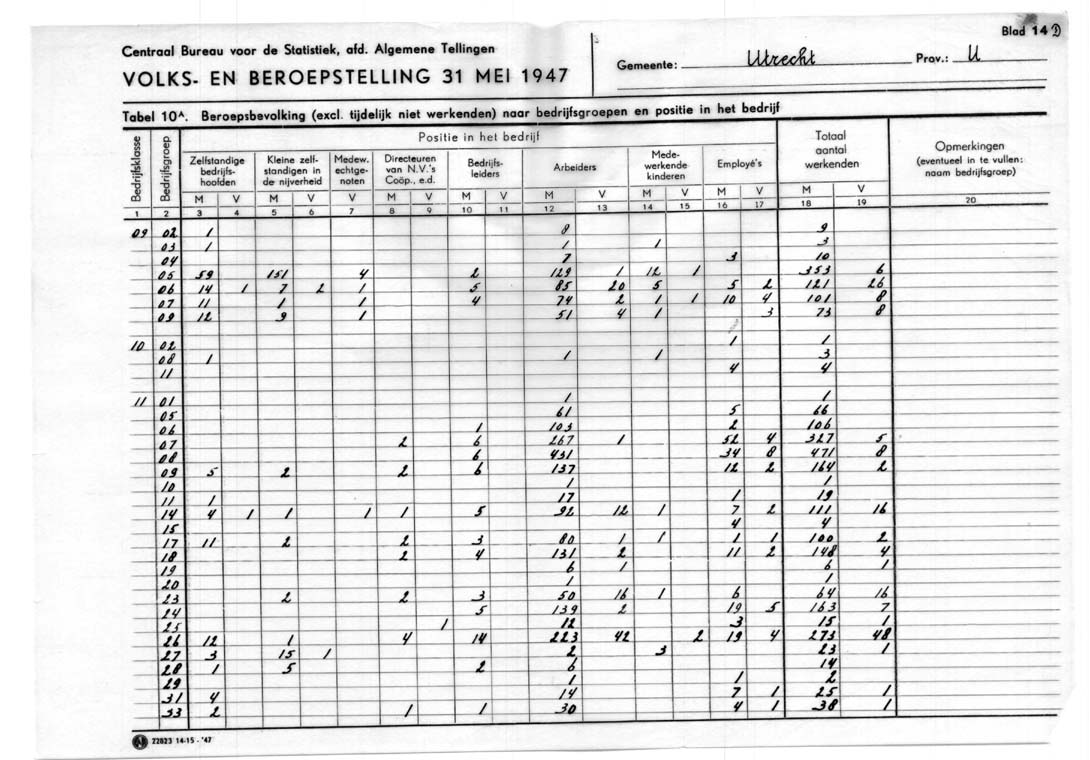 Blad 14 D
Centraal Bureau voor de Statistiek, afd. Algemene Tellingen
VOLKS- EN BEROEPSTELLING 31 MEI 1947
Gemeente: Utrecht Prov.: U
Tabel 10A. Beroepsbevolking (excl. tijdelijk niet werkenden) naar bedrijfsgroepen en positie in het bedrijf
Bedrijfsklasse Bedrijfsgroep Positie in het bedrijf Totaal aantal werkenden Opmerkingen (eventueel in te vullen: naam bedrijfsgroep)
Zelfstandige bedrijfshoofden Kleine zelfstandigen in de nijverheid Medew. echtgenoten Directeuren van N.V.'s Coöp., e.d. Bedrijfsleiders Arbeiders Medewerkende kinderen Employé's
M V M V V M V M V M V M V M V M V
1 2 3 4 5 6 7 8 9 10 11 12 13 14 15 16 17 18 19 20
09 02 1 8 9
03 1 1 1 3
04 7 3 10
05 59 151 4 2 129 1 12 1 353 6
06 14 1 7 2 1 5 85 20 5 5 2 121 26
07 11 1 1 4 74 2 1 1 10 4 101 8
09 12 9 1 51 4 1 3 73 8
10 02 1 1
08 1 1 1 3
11 4 4
11 01 1 1
05 61 5 66
06 1 103 2 106
07 2 6 267 1 52 4 327 5
08 6 431 34 8 471 8
09 5 2 2 6 137 12 2 164 2
10 1 1
11 1 17 1 19
14 4 1 1 1 1 5 92 12 1 7 2 111 16
15 4 4
17 11 2 2 3 80 1 1 1 1 100 2
18 2 4 131 2 11 2 148 4
19 6 1 6 1
20 1 1
23 2 2 3 50 16 1 6 64 16
24 5 139 2 19 5 163 7
25 1 12 3 15 1
26 12 1 4 14 223 42 2 19 4 273 48
27 3 15 1 2 3 23 1
28 1 5 2 6 14
29 1 1 2
31 4 14 7 1 25 1
33 2 1 1 30 4 1 38 1
22823 14-15 - '47